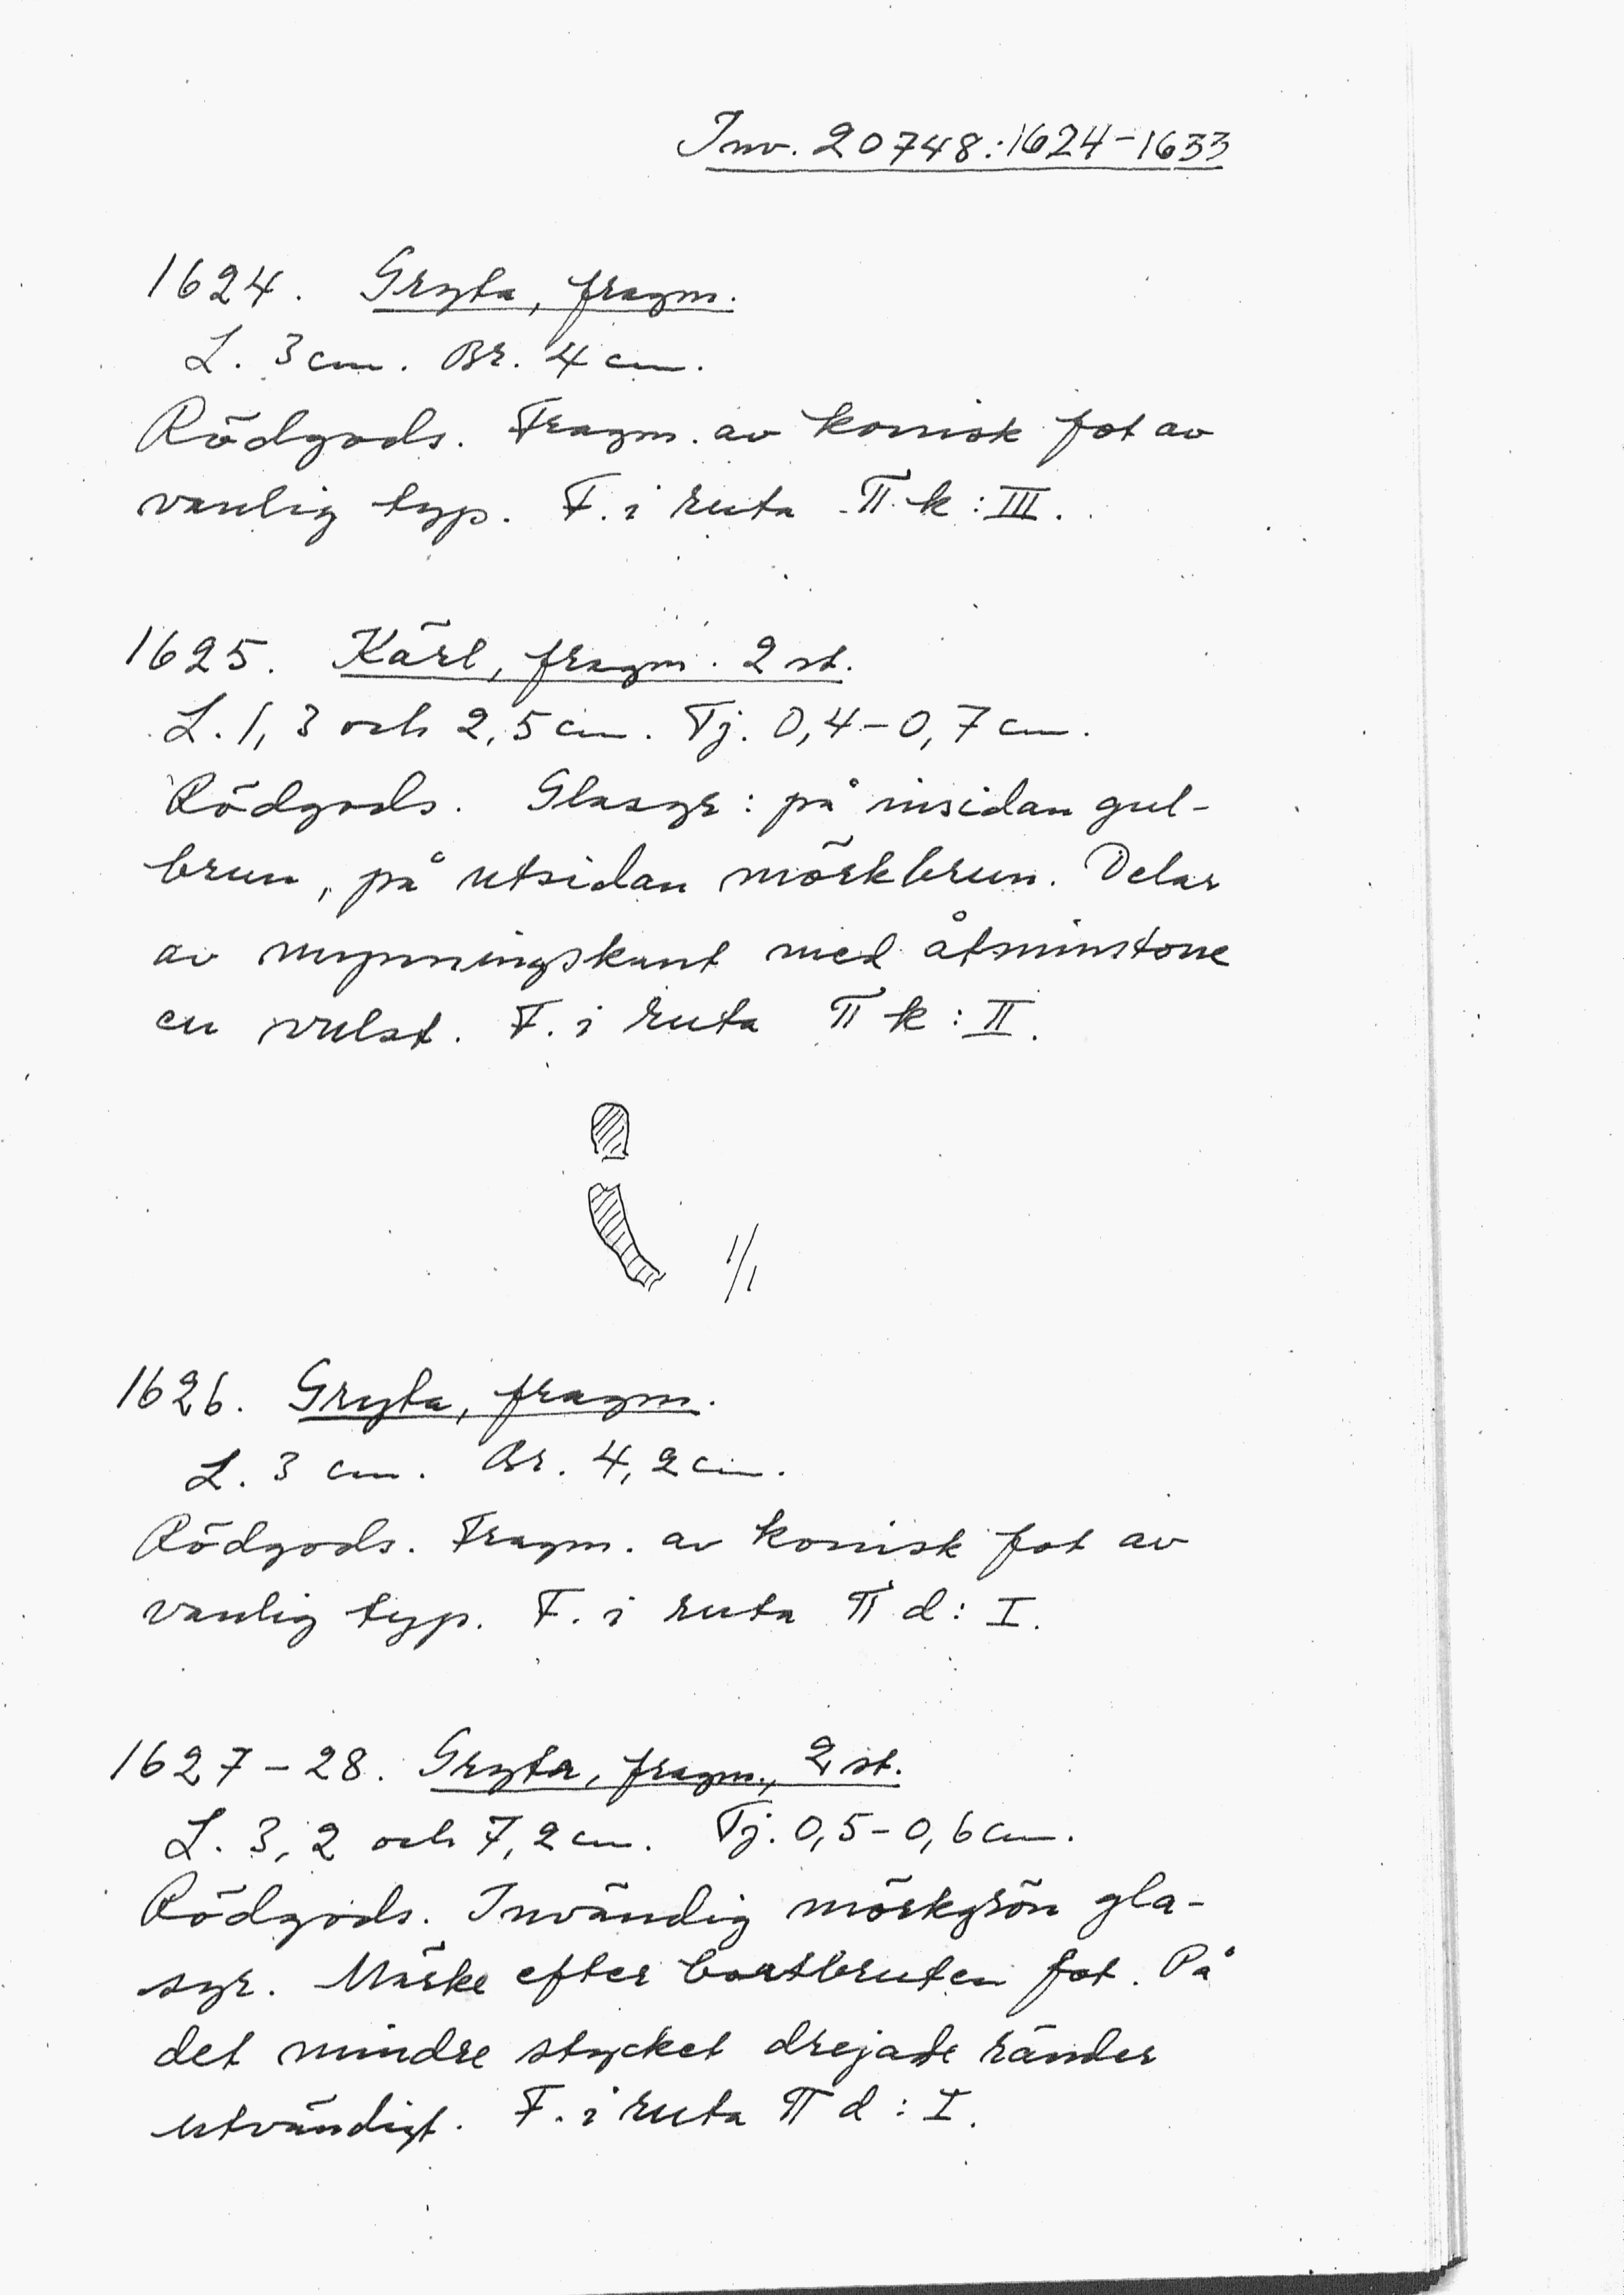 Inv. 20748:1624-1633
1624. Gryta, fragm.
L. 3 cm. Br. 4 cm.
Rödgods. Fragm. av konisk fot av
vanlig typ. F. i ruta II k : III.
1625. Kärl, fragm. 2 st.
L. 1,3 och 2,5 cm. Tj. 0,4-0,7 cm.
Rödgods. Glasyr : på insidan gul-
brun, på utsidan mörkbrun. Delar
av mynningskant med åtminstone
en vulst. F. i ruta II k : II.
1/1
1626. Gryta, fragm.
L. 3 cm. Br. 4,2 cm.
Rödgods. Fragm. av konisk fot av
vanlig typ. F. i ruta II d : I.
1627-28. Gryta, fragm., 2 st.
L. 3,2 och 7,2 cm. Tj. 0,5-0,6 cm.
Rödgods. Invändig mörkgrön gla-
syr. Märke efter bortbruten fot. På
det mindre stycket drejade ränder
utvändigt. F. i ruta II d : I.